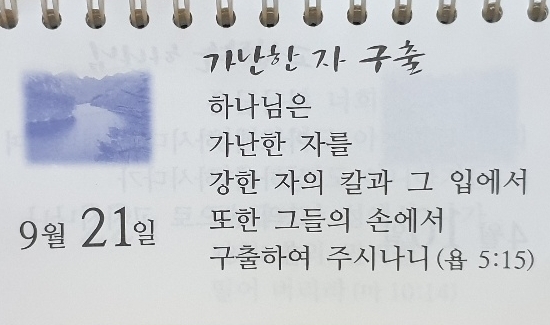 가난한 자 구출
하나님은
가난한 자를
강한 자의 칼과 그 입에서
또한 그들의 손에서
구출하여 주시나니 (욥 5:15)
9월 21일